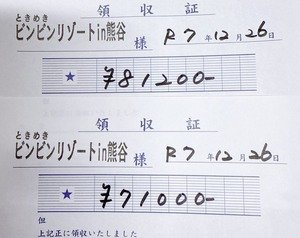 領収証
ときめき
ピンピンリゾートin熊谷 様 R7年12月26日
★ ¥81200-
領収証
ときめき
ピンピンリゾートin熊谷 様 R7年12月26日
★ ¥71000-
但
上記正に領収いたしました